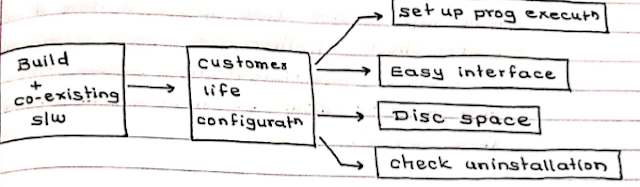 set up prog executn
Build
+
co-existing
s/w
customer
life
configuratn
Easy interface
Disc space
check uninstallation